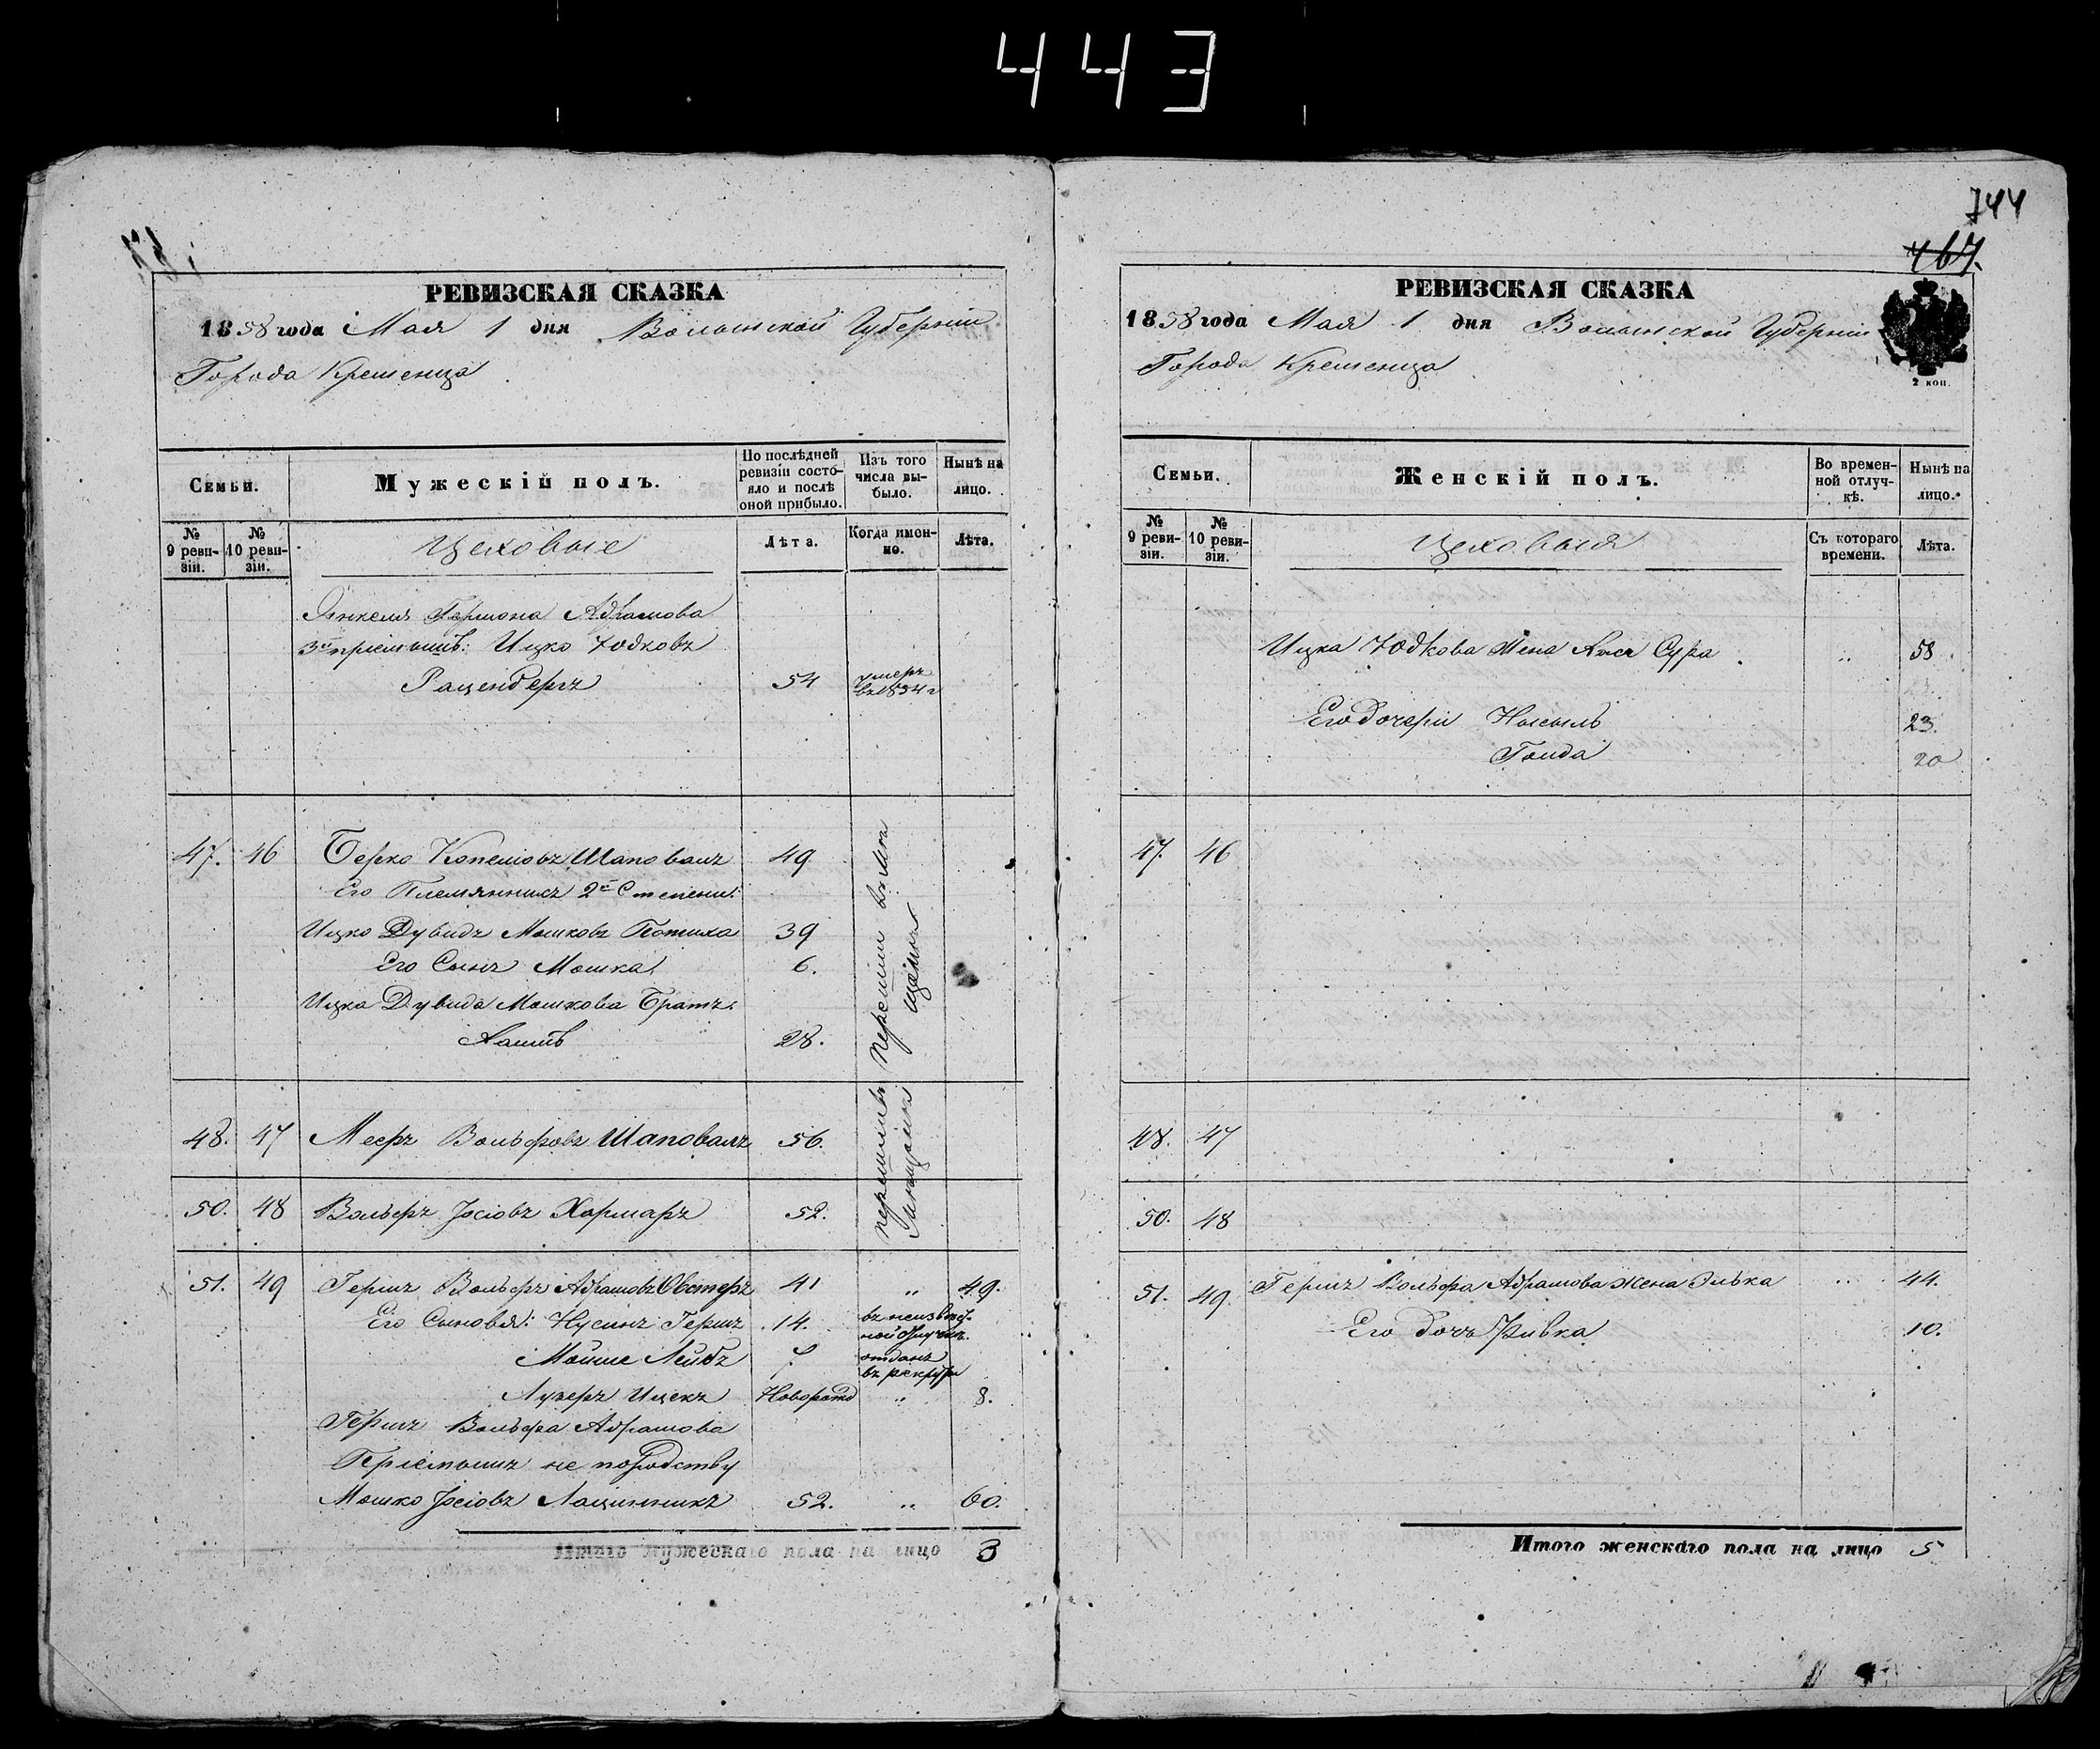 443
РЕВИЗСКАЯ СКАЗКА
1858 года Мая 1 дня Волынской Губерніи
Города Кременца
Семьи.
Мужескій полъ.
По послѣдней ревизіи состояло и послѣ оной прибыло.
Изъ того числа выбыло.
Нынѣ на лицо.
№ 9 ревизіи.
№ 10 ревизіи.
Цеховые
Лѣта.
Когда именно.
Лѣта.
Янкеля Гершона Абрамова
3й пріемышъ: Ицко Юдковъ
54 умеръ въ 1854 г
47. 46 Берко Копеліовъ Шаповалъ 49
Его Племянникъ 2й Степени:
Ицко Дувидъ Мошковъ 39
Его Сынъ Мошка 6.
Ицка Дувида Мошкова Братъ:
28.
перешли въ мѣщане
48. 47 Мееръ Вольфовъ Шаповалъ 56.
50. 48 Вольфъ Іосіовъ Хармаръ 52.
51. 49 Гершъ Вольфъ Абрамовъ 41 „ 49.
Его Сыновья: Нусинъ Гершъ 14. въ неизвѣстной отлучкѣ.
Мойше Лейбъ 7. отданъ въ рекруты
Лузеръ Ицекъ Новорожд „ 8.
Гершъ Вольфа Абрамова
Пріемышъ не по родству
Мошко Іосіовъ 52. „ 60.
Итого мужескаго пола на лицо 3
744
467.
РЕВИЗСКАЯ СКАЗКА
2 коп.
1858 года Мая 1 дня Волынской Губерніи
Города Кременца
Семьи.
Женскій полъ.
Во временной отлучкѣ.
Нынѣ на лицо.
№ 9 ревизіи.
№ 10 ревизіи.
Цеховыя
Съ котораго времени.
Лѣта.
Ицка Юдкова Жена Хася Сура „ 58
Его Дочери 23.
Голда 20
47. 46
48. 47
50. 48
51. 49. Гершъ Вольфа Абрамова жена Элька „ 44.
Его дочь Ривка 10.
Итого женскаго пола на лицо 5